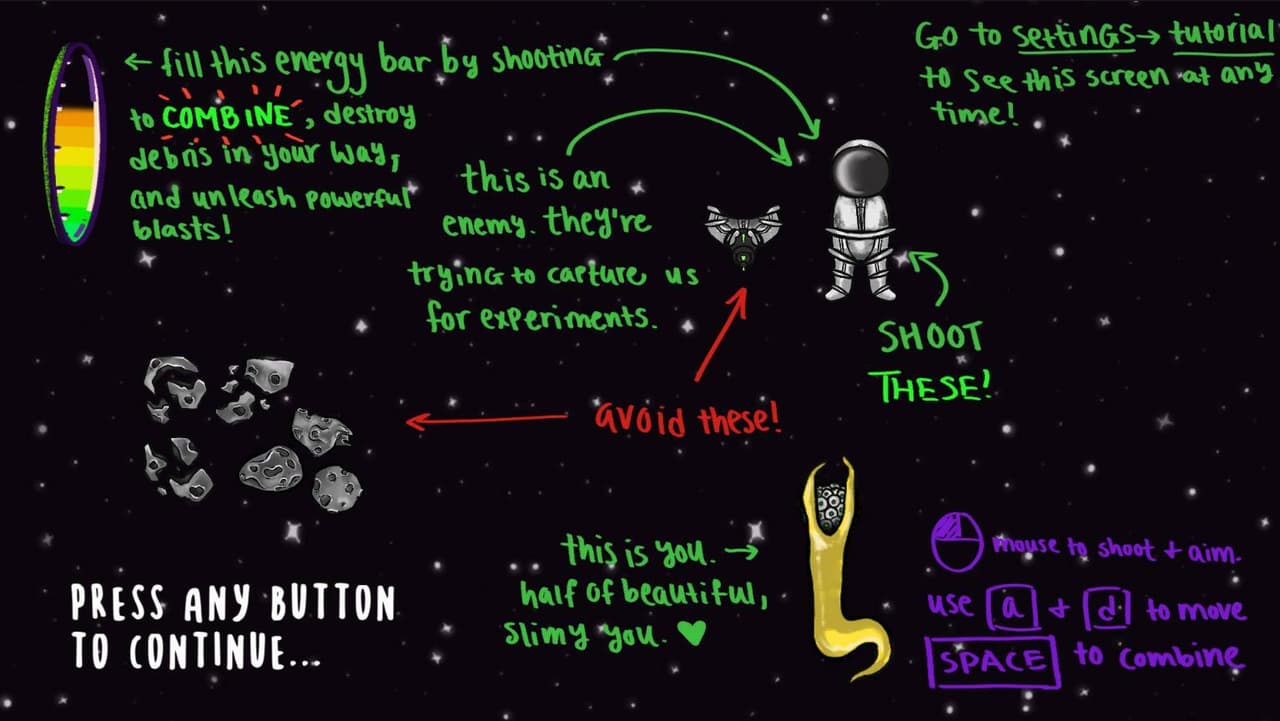 ← fill this energy bar by shooting
to COMBINE, destroy
debris in your way,
and unleash powerful
blasts!
Go to settings → tutorial
to see this screen at any
time!
this is an
enemy. they're
trying to capture us
for experiments.
SHOOT
THESE!
avoid these!
this is you. →
half of beautiful,
slimy you. ♥
mouse to shoot + aim.
use a + d to move
SPACE to combine
PRESS ANY BUTTON
TO CONTINUE...